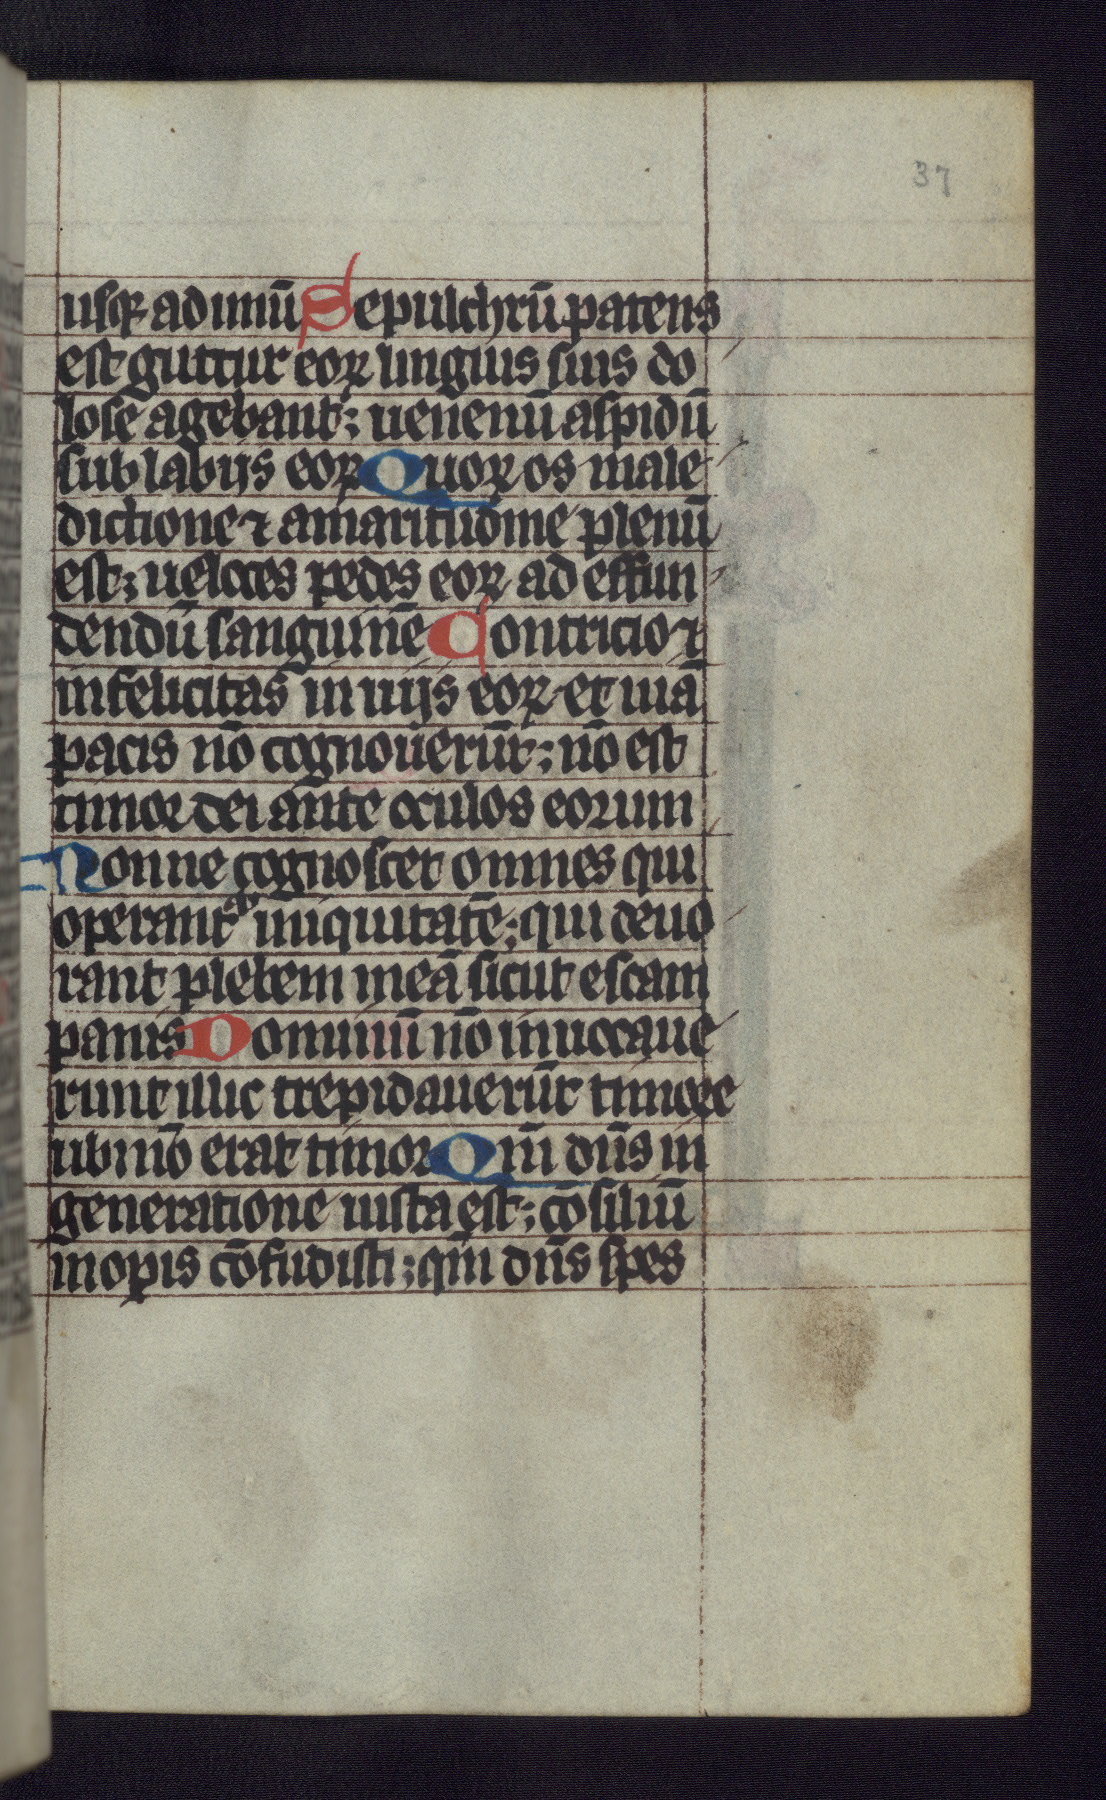 37
usqꝫ ad unũ Sepulchrũ patens
est guttur eoꝝ linguis suis do
lose agebant; uenenũ aspidũ
sub labijs eoꝝ Quoꝝ os male
dictione ⁊ amaritudine plenũ
est; ueloces pedes eoꝝ ad effun
dendũ sanguinẽ Contricio ⁊
infelicitas in uijs eoꝝ et uiã
pacis nõ cognouerũt; nõ est
timor dei ante oculos eorum
Nonne cognoscet omnes qui
operantᷣ iniquitatẽ; qui deuo
rant plebem meã sicut escam
panis Dominũ nõ inuocaue
runt illic trepidauerũt timore
ubi nõ erat timor Qm̃ dñs in
generatione iusta est; cõsiliũ
inopis cõfudisti; qm̃ dñs spes